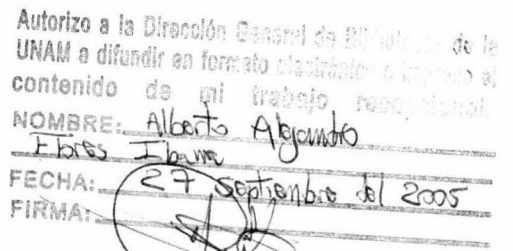 Autorizo a la Dirección General de Bibliotecas de la
UNAM a difundir en formato electrónico e impreso el
contenido de mi trabajo recepcional.
NOMBRE: Alberto Alejandro
Flores Ibarra
FECHA: 27 Septiembre del 2005
FIRMA: